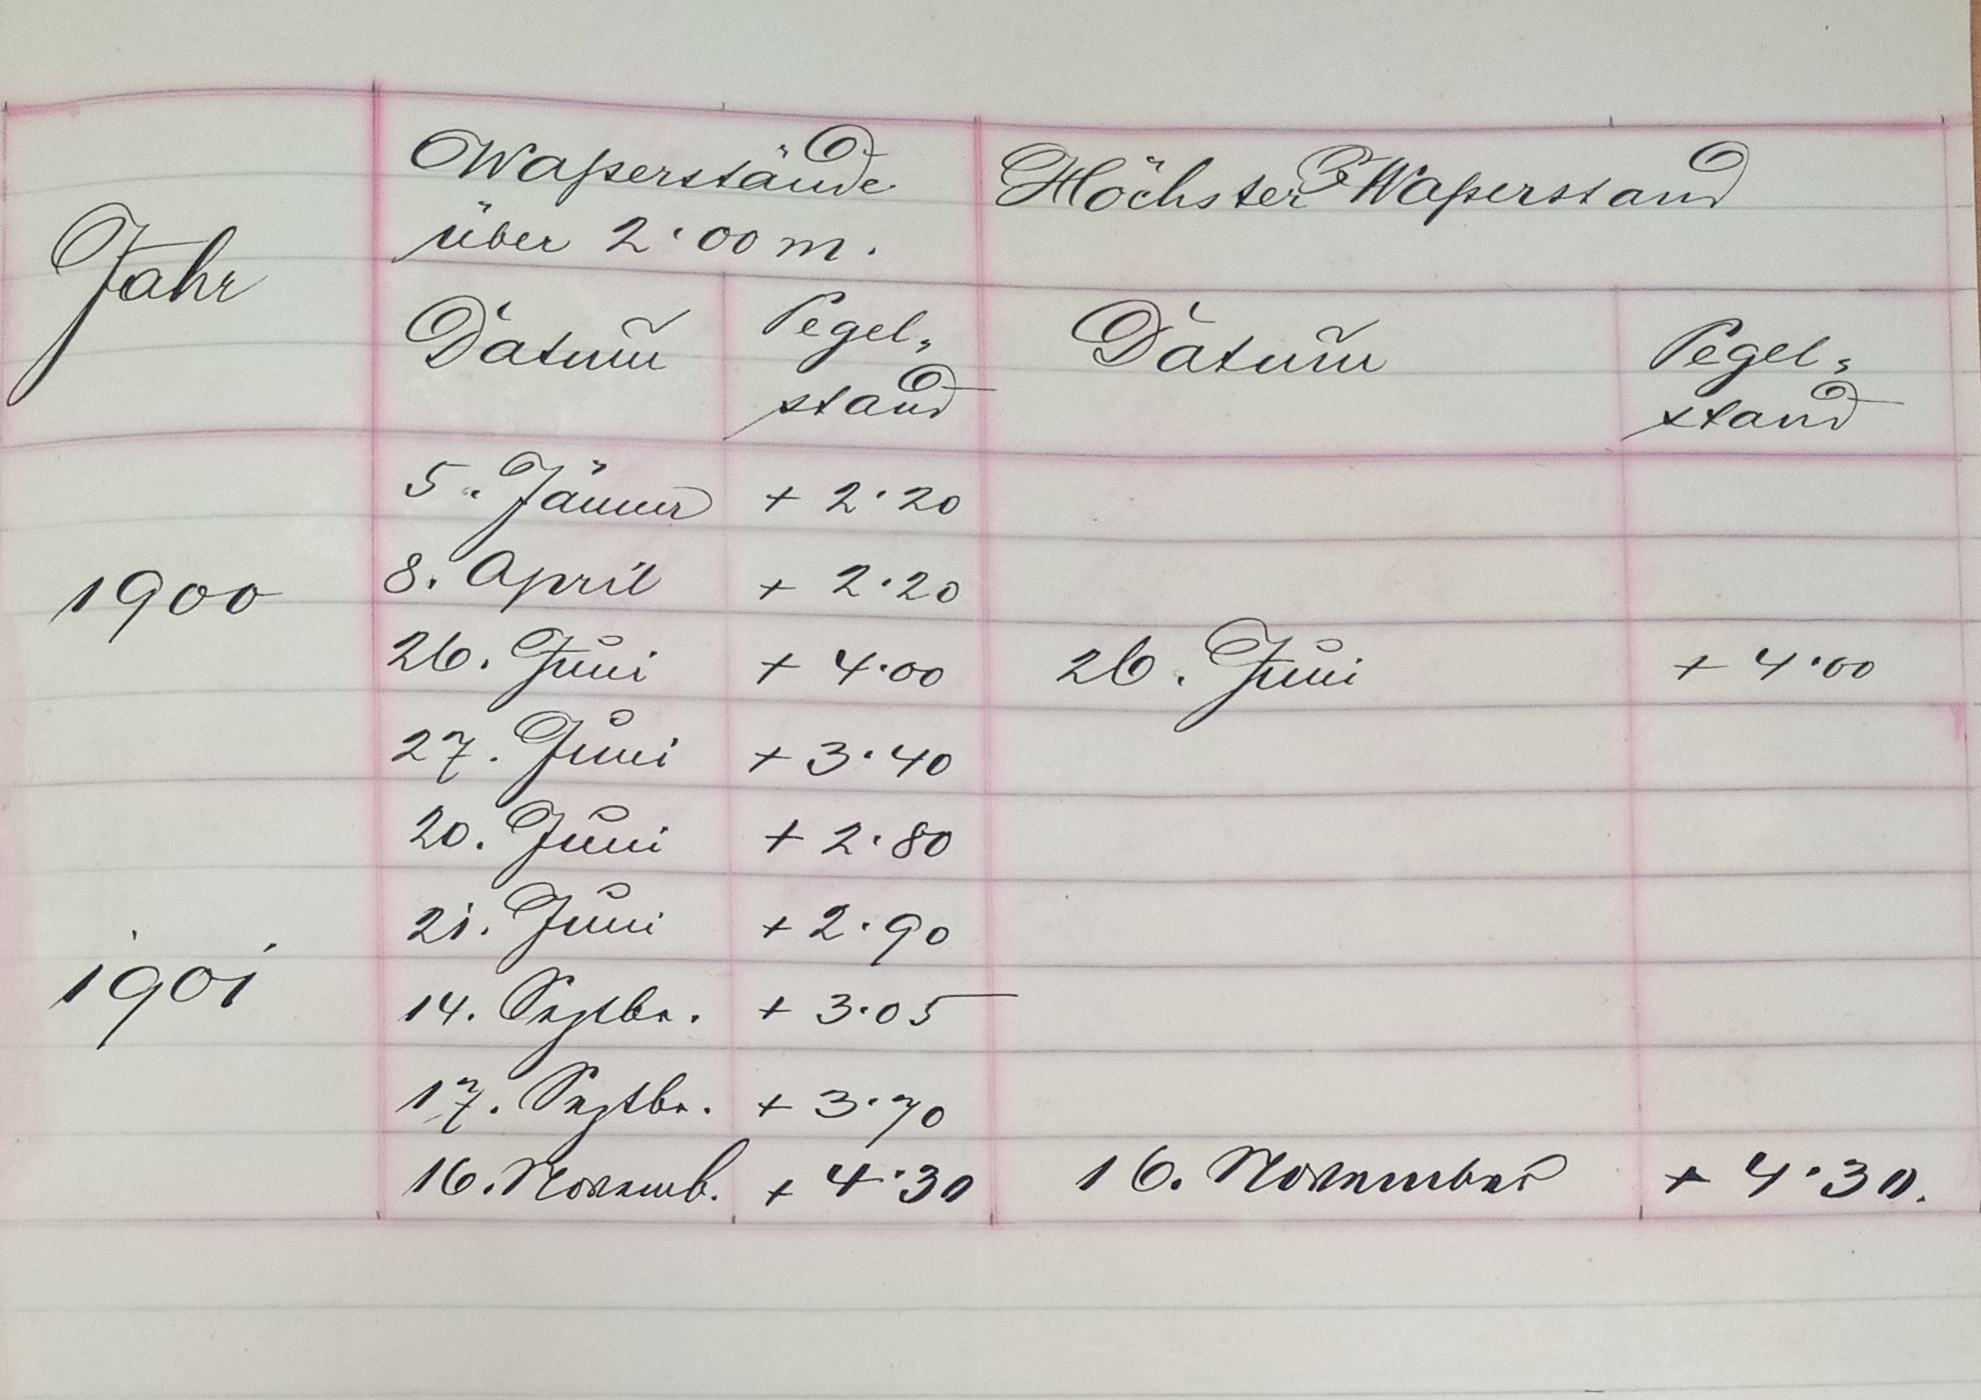 Jahr
Waßerstände
über 2·00 m.
Höchster Waßerstand
Datum
Pegel„
stand
Datum
Pegel„
stand
5. Jänner + 2·20
1900
8. April + 2·20
26. Juni + 4·00 26. Juni + 4·00
27. Juni + 3·40
20. Juni + 2·80
21. Juni + 2·90
1901
14. Septbr. + 3·05
17. Septbr. + 3·70
16. Novemb. + 4·30 16. November + 4·30.